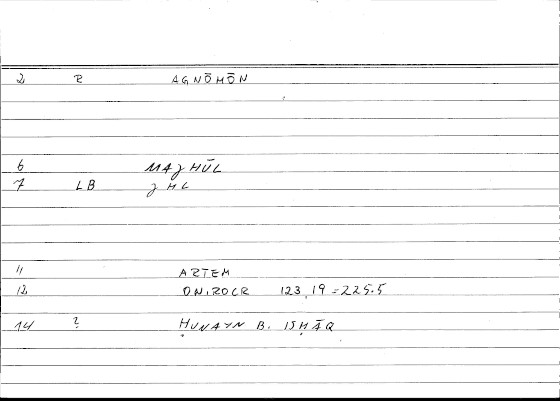 2 R AGNŌMŌN
6 MAJHŪL
7 LB JHL
11 ARTEM
12 ONIROCR 123,19 = 225.5
14 ? ḤUNAYN B. ISḤĀQ